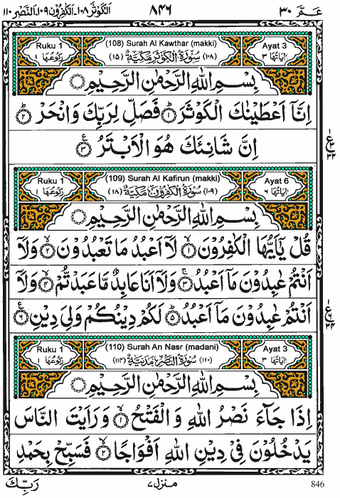 الكوثر١٠٨ الكفرون١٠٩ النصر١١٠ ٨٤٦ عمّ ٣٠
Ruku 1 (108) Surah Al Kawthar (makki) Ayat 3
رکوعها ١ (١٥) سورة الكوثر مكية (١٠٨) اياتها ٣
بسم الله الرحمن الرحيم
اِنَّاۤ اَعۡطَيۡنٰكَ الۡكَوۡثَرَ ١ فَصَلِّ لِرَبِّكَ وَانۡحَرۡ ٢
اِنَّ شَانِئَكَ هُوَ الۡاَبۡتَرُ ٣
Ruku 1 (109) Surah Al Kafirun (makki) Ayat 6
رکوعها ١ (١٨) سورة الكفرون مكية (١٠٩) اياتها ٦
بسم الله الرحمن الرحيم
قُلۡ يٰۤاَيُّهَا الۡكٰفِرُوۡنَ ١ لَاۤ اَعۡبُدُ مَا تَعۡبُدُوۡنَ ٢ وَلَاۤ
اَنۡتُمۡ عٰبِدُوۡنَ مَاۤ اَعۡبُدُ ٣ وَلَاۤ اَنَا عَابِدٌ مَّا عَبَدتُّمۡ ٤ وَلَاۤ
اَنۡتُمۡ عٰبِدُوۡنَ مَاۤ اَعۡبُدُ ٥ لَكُمۡ دِيۡنُكُمۡ وَلِىَ دِيۡنِ ٦
Ruku 1 (110) Surah An Nasr (madani) Ayat 3
رکوعها ١ (١١٤) سورة النصر مدنية (١١٠) اياتها ٣
بسم الله الرحمن الرحيم
اِذَا جَآءَ نَصۡرُ اللّٰهِ وَالۡفَتۡحُ ١ وَرَاَيۡتَ النَّاسَ
يَدۡخُلُوۡنَ فِىۡ دِيۡنِ اللّٰهِ اَفۡوَاجًا ٢ فَسَبِّحۡ بِحَمۡدِ
رَبِّكَ منزل ٧ 846